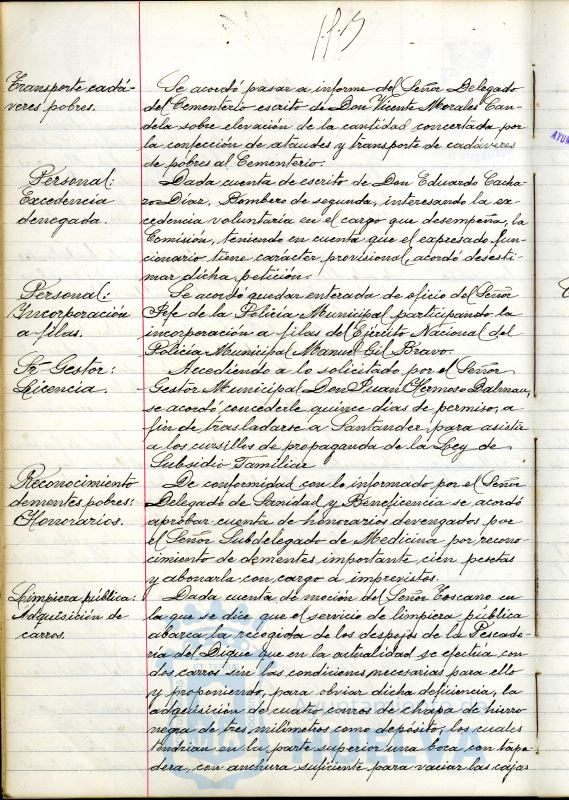 Transporte cadá-
veres pobres.
Se acordó pasar a informe del Señor Delegado
del Cementerio escrito de Don Vicente Morales Can-
dela sobre elevación de la cantidad concertada por
la confección de ataudes y transporte de cadáveres
de pobres al Cementerio.
Personal:
Excedencia
denegada.
Dada cuenta de escrito de Don Eduardo Cacha-
zo Diaz, Bombero de segunda, interesando la ex-
cedencia voluntaria en el cargo que desempeña, la
Comisión, teniendo en cuenta que el expresado fun-
cionario tiene carácter provisional, acordó desesti-
mar dicha petición.
Personal:
Yncorporación
a filas.
Se acordó quedar enterada de oficio del Señor
Jefe de la Policia Municipal participando la
incorporación a filas del Ejército Nacional del
Policia Municipal Manuel Gil Bravo.
Sr. Gestor:
Licencia.
Accediendo a lo solicitado por el Señor
Gestor Municipal Don Juan Hermoso Dalmau,
se acordó concederle quince dias de permiso, a
fin de trasladarse a Santander para asistir
a los cursillos de propaganda de la Ley de
Subsidio Familiar
Reconocimiento
dementes pobres:
Honorarios.
De conformidad con lo informado por el Señor
Delegado de Sanidad y Beneficencia se acordó
aprobar cuenta de honorarios devengados por
el Señor Subdelegado de Medicina por recono-
cimiento de dementes importante cien pesetas
y abonarla con cargo a imprevistos.
Limpieza pública:
Adquisición de
carros.
Dada cuenta de moción del Señor Toscano en
la que se dice que el servicio de limpieza pública
abarca la recogida de los despojos de la Pescade-
ria del Dique que en la actualidad se efectúa con
dos carros sin las condiciones necesarias para ello
y proponiendo, para obviar dicha deficiencia, la
adquisición de cuatro carros de chapa de hierro
negra de tres milímetros como depósito, los cuales
tendrian en la parte superior una boca con tapa-
dera, con anchura suficiente para vaciar las cajas
Ayuntamiento de
HUELVA